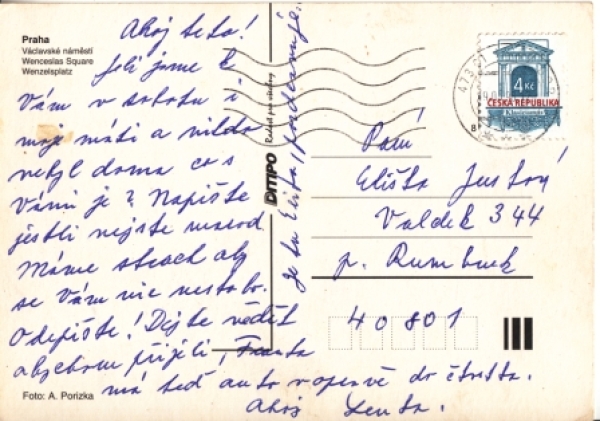 Praha
Václavské náměstí
Wenceslas Square
Wenzelsplatz
Ahoj teto!
Jeli jsme k
Vám v sobotu i
moji máti a nikdo
nebyl doma co s
Vámi je? Napište
jestli nejste marod
Máme strach aby
se Vám nic nestalo.
Odepište! Dejte vědět
abychom přijeli, Franta
má teď auto v opravě do čtvrtka.
Ahoj Lenka.
Je tu Eliška, pozdravuje.
DITIPO Radost pro všechny
4 Kč
ČESKÁ REPUBLIKA
Klasicismus
8
473 01
Paní
Eliška
Valdek 344
p. Rumburk
40801
Foto: A. Porizka